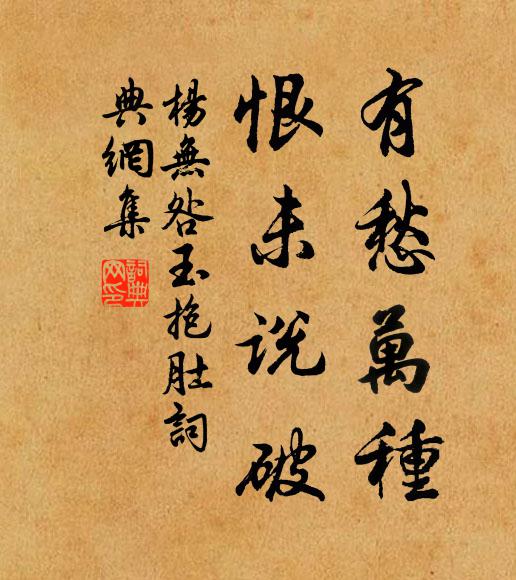 有愁萬種
恨未說破
楊無咎玉抱肚詞
典網集
詞典网印